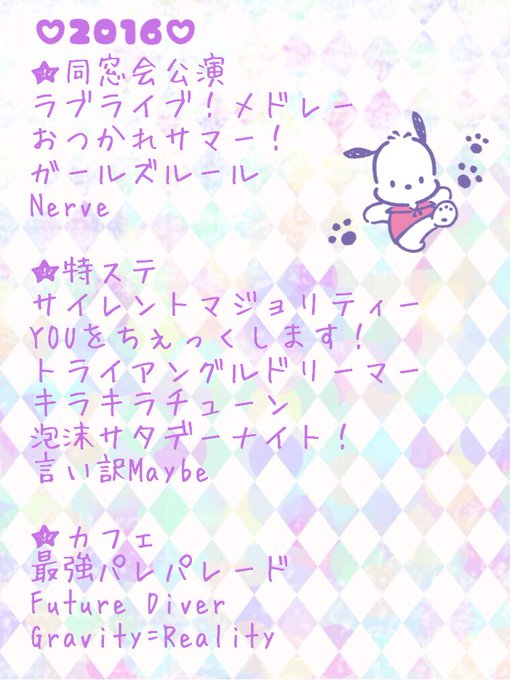 ♡2016♡
★同窓会公演
ラブライブ！メドレー
おつかれサマー！
ガールズルール
Nerve
★特ステ
サイレントマジョリティー
YOUをちぇっくします！
トライアングルドリーマー
キラキラチューン
泡沫サタデーナイト！
言い訳Maybe
★カフェ
最強パレパレード
Future Diver
Gravity=Reality